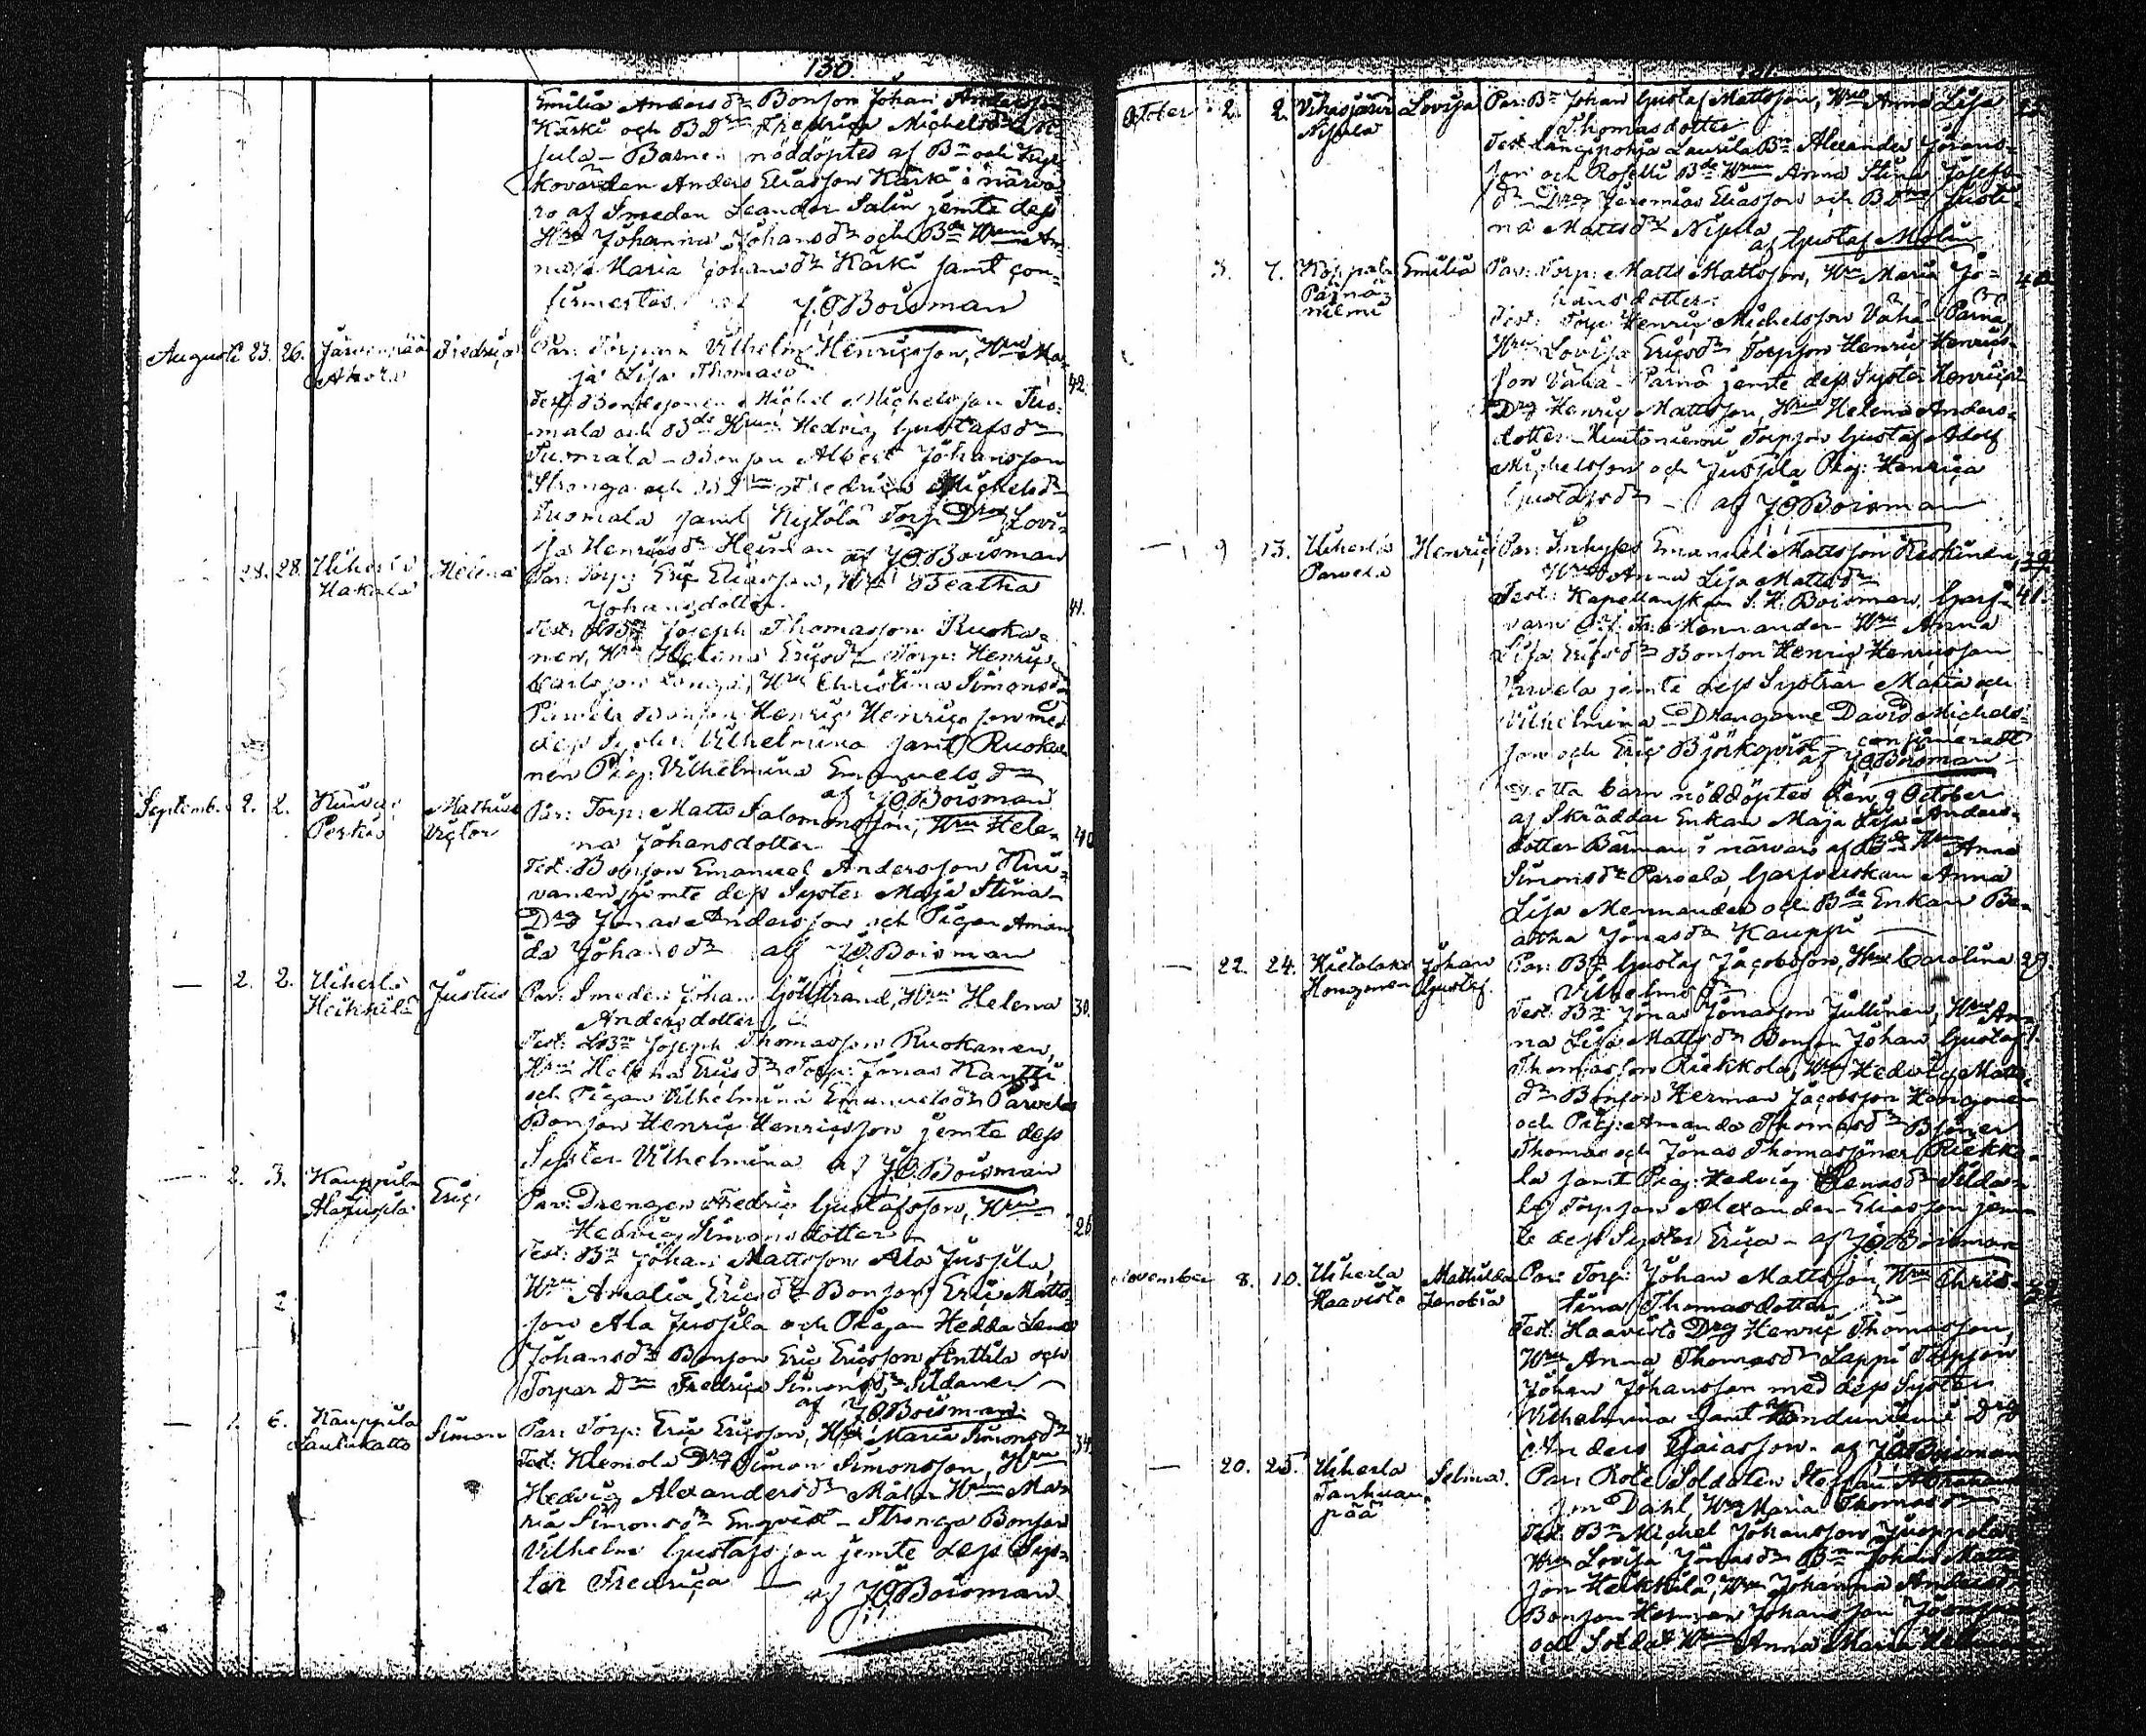 130
Emilia Anders dr Bonson Johan Andersson
Kärki och B Dr Fredrica Michelsdr
jula – Barnen nöddöptes af Bn och Kyrk
kovärden Anders Eliasson Kärki i närva
ro af Smeden Leander Salin jemte dess
Hru Johanna Johansdr och Bde Hrun An-
na Maria Johansdr Kärki samt con-
firmertes. J.O Boisman
Augusti 23. 26. Järvenpää Fredrica Par: Torparn Vilhelm Henricsson, Hru Ma-
Ahora ja Lisa Thomasdr 42.
Test: Bondsonen Michel Michelsson Tuo-
mala och Bde Hrun Hedvig Gustafsdr
Tuomala – Bonson Albert Johansson
Stronga och B Drn Fredrica Michelsdr
Tuomala samt Torp Drn Lovi-
sa Henricsdr Heinlan af J.O.Boisman
28. 28. Uiherla Helena Par: Torp: Eric Eliasson, Hru Beatha
Hakala Johansdotter 41.
Test: Joseph Thomasson Ruoka-
nen, Hru Helena Ericsdr Torp: Henric
Carlsson Hru Christina Simonsdr
Parvela Bonson Henric Henricsson med
dess Syster Vilhelmina samt Ruoka
nen Pig: Vilhelmina Emanuelsdr
af J.O.Boisman
Septemb. 2. 2. Mathias Par: Torp: Matts Salomonsson, Hru Hele-
Perkiö Victor na Johansdotter 40
Test: Bonson Emanuel Andersson Kui-
vanen jemte dess Syster Maja Stina
Drg Jonas Andersson och Pigan Aman
da Johansdr af J.O.Boisman
— 2. 2. Uiherla Justus Par: Smeden Johan Hru Helena 30.
Heikkilä Andersdotter
Test: Joseph Thomasson Ruokanen,
Hru Helena Ericsdr Torp: Jonas Kauppi
och Pigan Vilhelmina Emanuelsdr Parvela
Bonson Henric Henricsson jemte dess
Syster Vilhelmina af J.O.Boisman
— 2. 3. Kauppila Eric Par: Drengen Fredric Gustafsson, Hru
Alajussila Hedvig Simonsdotter 26
Test: Bn Johan Mattsson Ala Jussila,
Hru Amalia Ericsdr Bonson Eric Matts-
son Ala Jussila och Pigan Hedda Lena
Johansdr Bonson Eric Ericsson Anttila och
Torpar Drn Fredrica Simonsdr Sildanen
af J.O.Boisman
— 6. Kauppila Simon Par: Torp: Eric Ericsson, Hru Maria Simonsdr 34
Test: Klemola Drg Simon Simonsson, Hru
Hedvig Alexandersdr Målar Hrun Ma-
ria Simonsdr Enqvist – Stronga Bonson
Vilhelm Gustafsson jemte dess Sys-
ter Fredrica — af J.O.Boisman
October 2. 2. Vihasjärvi Lovisa Par: Bn Johan Gustaf Mattsson, Hru Anna Lisa
Nipula Thomasdotter
Test Långpohja Laurila Bn Alexander Jörans-
son och Roselli Bde Hrun Anna Stina Josefs
dr Drg Jeremias Eliasson och B Drn Justi-
na Mattsdr Nipula
af Gustaf Molin
3. 7. Emilia Par: Torp: Matts Mattsson, Hru Maria Jo- 40
Pärnä- hansdotter
niemi Test: Torp: Henric Michelsson Vähä-Pärnä,
Hru Lovisa Ericsdr Torpson Henric Henrics-
son Vähä-Pärnä jemte dess Syster Henrica
Drg Henric Mattsson, Hru Helena Anders-
dotter Torpson Gustaf Adolf
Michelsson och Jussila Pig: Henrica
Gustafsdr – af J.O Boisman
— 9 13. Uiherla Henric Par: Inhyses Emanuel Mattsson Keskinen, 39.
Parvela Hru Anna Lisa Mattsdr
Test: Kapellanskan S.H. Boisman, Garf- 41.
varn Mennander Hru Anna
Lisa Ericsdr Bonson Henric Henricsson
Parvela jemte dess Systrar Maria och
Vilhelmina – Drengarne David Michels-
son och Eric Björkqvist – confirmeradt
af J.O.Boisman
Detta barn nöddöptes den 9 October
af Skräddar Enkan Maja Lisa Anders-
dotter Bärman i närvaro af Bde Hrun Anna
Simonsdr Parvela, Garfvarskan Anna
Lisa Mennander och Bde Enkan Be-
atha Jonasdr Kauppi —
— 22. 24. Hietalaks Johan Par: Bn Gustaf Jacobsson, Hru Carolina 29.
Gustaf Vilhelmsdr
Test: Bn Jonas Jonasson Jullinen, Hru An-
na Lisa Mattsdr Bonson Johan Gustaf
Thomasson Riekkola, Hru Hedvig Matts
dr Bonson Herman Jacobsson
och Pig: Amanda Thomasdr
Thomas och Jonas Thomassöner Riekko-
la samt Pig: Hedvig
Torpson Alexander Eliasson jem-
te dess Syster Erica – af J.O Boisman
November 8. 10. Uiherla Mathilda Par: Torp: Johan Mattsson, Hru Chris-
Haavisto Zenobia tina Thomasdotter
Test: Haavisto Drg Henric Thomasson,
Hru Anna Thomasdr Lappi Torpson
Johan Johansson med dess Syster
Vilhelmina samt Drg
Anders Esaiasson – af J.O Boisman
— 20. 25. Uiherla Selma. Par: Rote Soldaten Staffan Abraham
Tanhuan- son Dahl, Hru Maria Thomasdr
pää Test: Bn Michel Johansson
Hru Lovisa Jonasdr Bn Johan Matts
son Heikkilä, Hru Johanna Andersdr
Bonson Herman Johansson
och Soldat Hrun Anna Maria